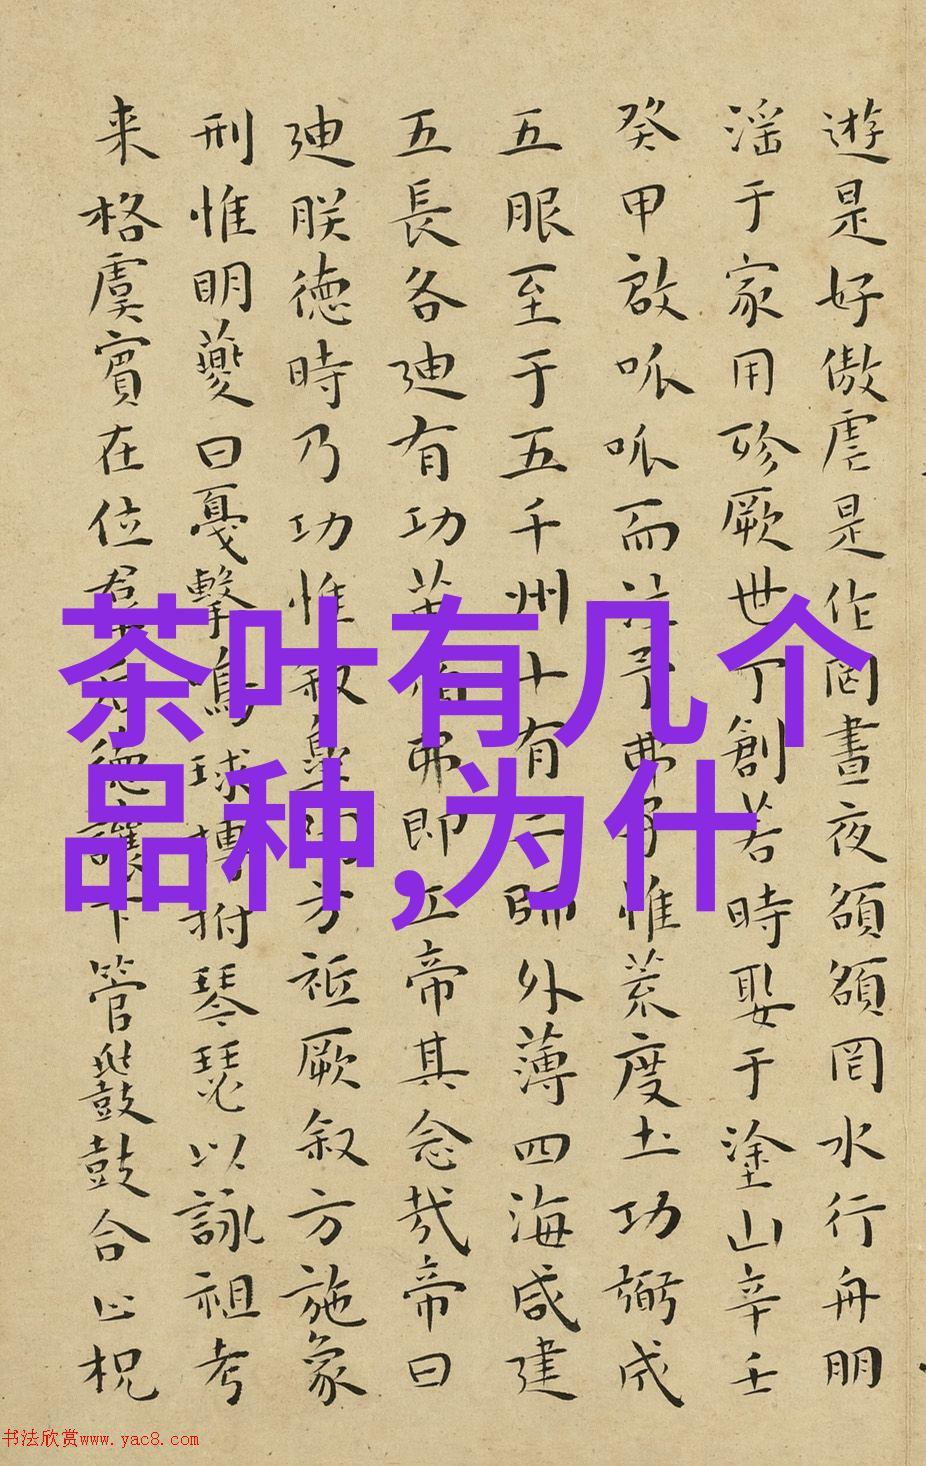 遊是好傲虐是作罔晝夜頟頟罔水行舟朋
淫于家用殄厥世予創若時娶于塗山辛壬
癸甲啟呱呱而泣予弗子惟荒度土功弼成
五服至于五千州十有二師外薄四海咸建
五長各迪有功苗頑弗即工帝其念哉帝曰
迪朕德時乃功惟敘皋陶方祗厥叙方施象
刑惟明夔曰戛擊鳴球搏拊琴瑟以詠祖考
来格虞賓在位羣后德讓下管鼗鼓合止柷
茶叶有几个
品种,为什
书法欣赏www.yac8.com